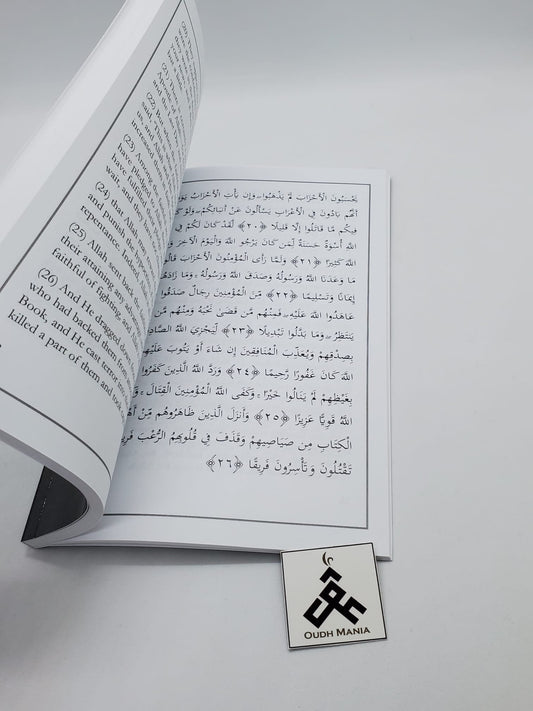 (22) But when the
us, and Allah
increased the
(23) Among the
have pledged
have fulfilled
wait, and
(24) that Allah
and punish the
repentance. Indeed
(25) Allah sent back the
their attaining any
faithful of fighting, and
(26) And He dragged
who had backed them from
Book, and He cast terror
killed a part of them and
يَحْسَبُونَ الْأَحْزَابَ لَمْ يَذْهَبُوا ۖ وَإِن يَأْتِ الْأَحْزَابُ
أَنَّهُم بَادُونَ فِي الْأَعْرَابِ يَسْأَلُونَ عَنْ أَنبَائِكُمْ ۖ وَلَوْ
فِيكُم مَّا قَاتَلُوا إِلَّا قَلِيلًا ﴿٢٠﴾ لَّقَدْ كَانَ لَكُمْ فِي
اللَّهِ أُسْوَةٌ حَسَنَةٌ لِّمَن كَانَ يَرْجُو اللَّهَ وَالْيَوْمَ الْآخِرَ
اللَّهَ كَثِيرًا ﴿٢١﴾ وَلَمَّا رَأَى الْمُؤْمِنُونَ الْأَحْزَابَ قَالُوا
مَا وَعَدَنَا اللَّهُ وَرَسُولُهُ وَصَدَقَ اللَّهُ وَرَسُولُهُ ۚ وَمَا زَادَهُمْ
إِيمَانًا وَتَسْلِيمًا ﴿٢٢﴾ مِّنَ الْمُؤْمِنِينَ رِجَالٌ صَدَقُوا
عَاهَدُوا اللَّهَ عَلَيْهِ ۖ فَمِنْهُم مَّن قَضَىٰ نَحْبَهُ وَمِنْهُم
يَنتَظِرُ ۖ وَمَا بَدَّلُوا تَبْدِيلًا ﴿٢٣﴾ لِّيَجْزِيَ اللَّهُ
بِصِدْقِهِمْ وَيُعَذِّبَ الْمُنَافِقِينَ إِن شَاءَ أَوْ يَتُوبَ عَلَيْهِمْ
اللَّهَ كَانَ غَفُورًا رَّحِيمًا ﴿٢٤﴾ وَرَدَّ اللَّهُ الَّذِينَ كَفَرُوا
بِغَيْظِهِمْ لَمْ يَنَالُوا خَيْرًا ۚ وَكَفَى اللَّهُ الْمُؤْمِنِينَ الْقِتَالَ ۚ
اللَّهُ قَوِيًّا عَزِيزًا ﴿٢٥﴾ وَأَنزَلَ الَّذِينَ ظَاهَرُوهُم مِّنْ
الْكِتَابِ مِن صَيَاصِيهِمْ وَقَذَفَ فِي قُلُوبِهِمُ الرُّعْبَ
تَقْتُلُونَ وَتَأْسِرُونَ فَرِيقًا ﴿٢٦﴾
OUDH MANIA